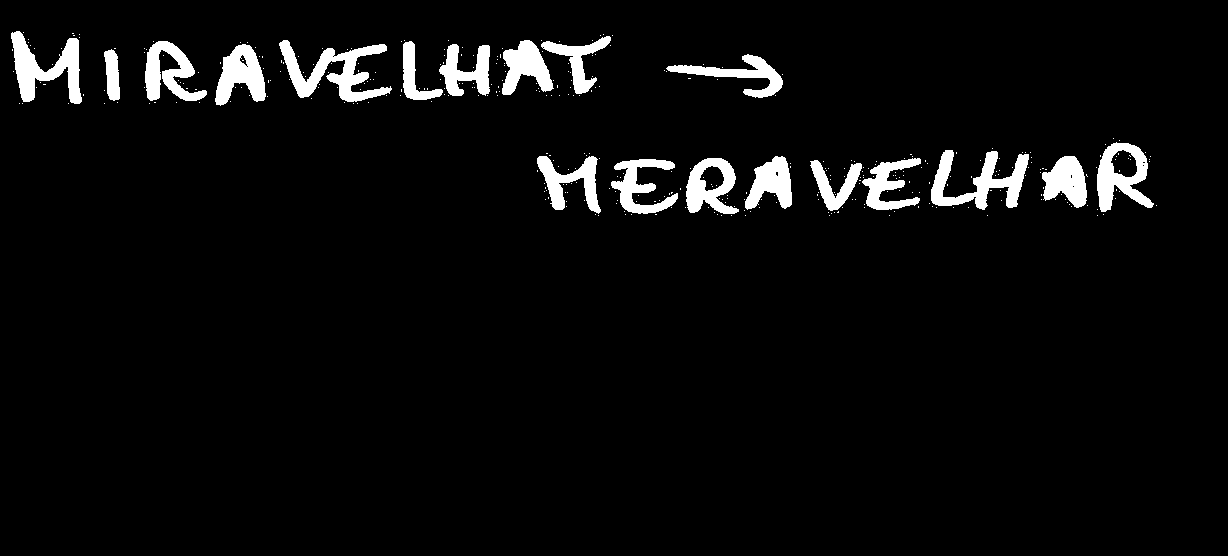 MIRAVELHAT →
MERAVELHAR